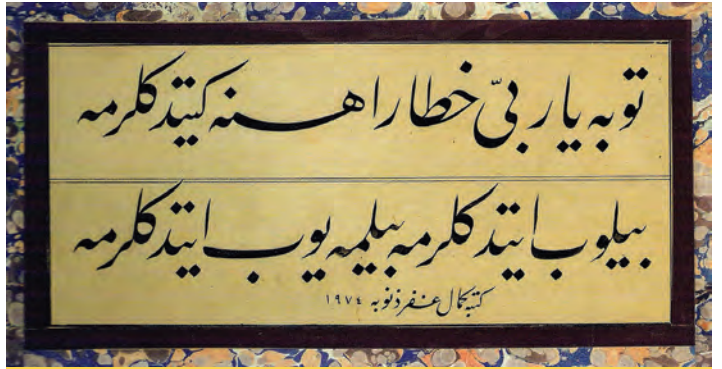 توبه يا ربّی خطا راهنه كیتدكلرمه
بیلوب ایتدكلرمه بیلمه یوب ایتدكلرمه
كتبه كمال غفر ذنوبه ١٩٧٤